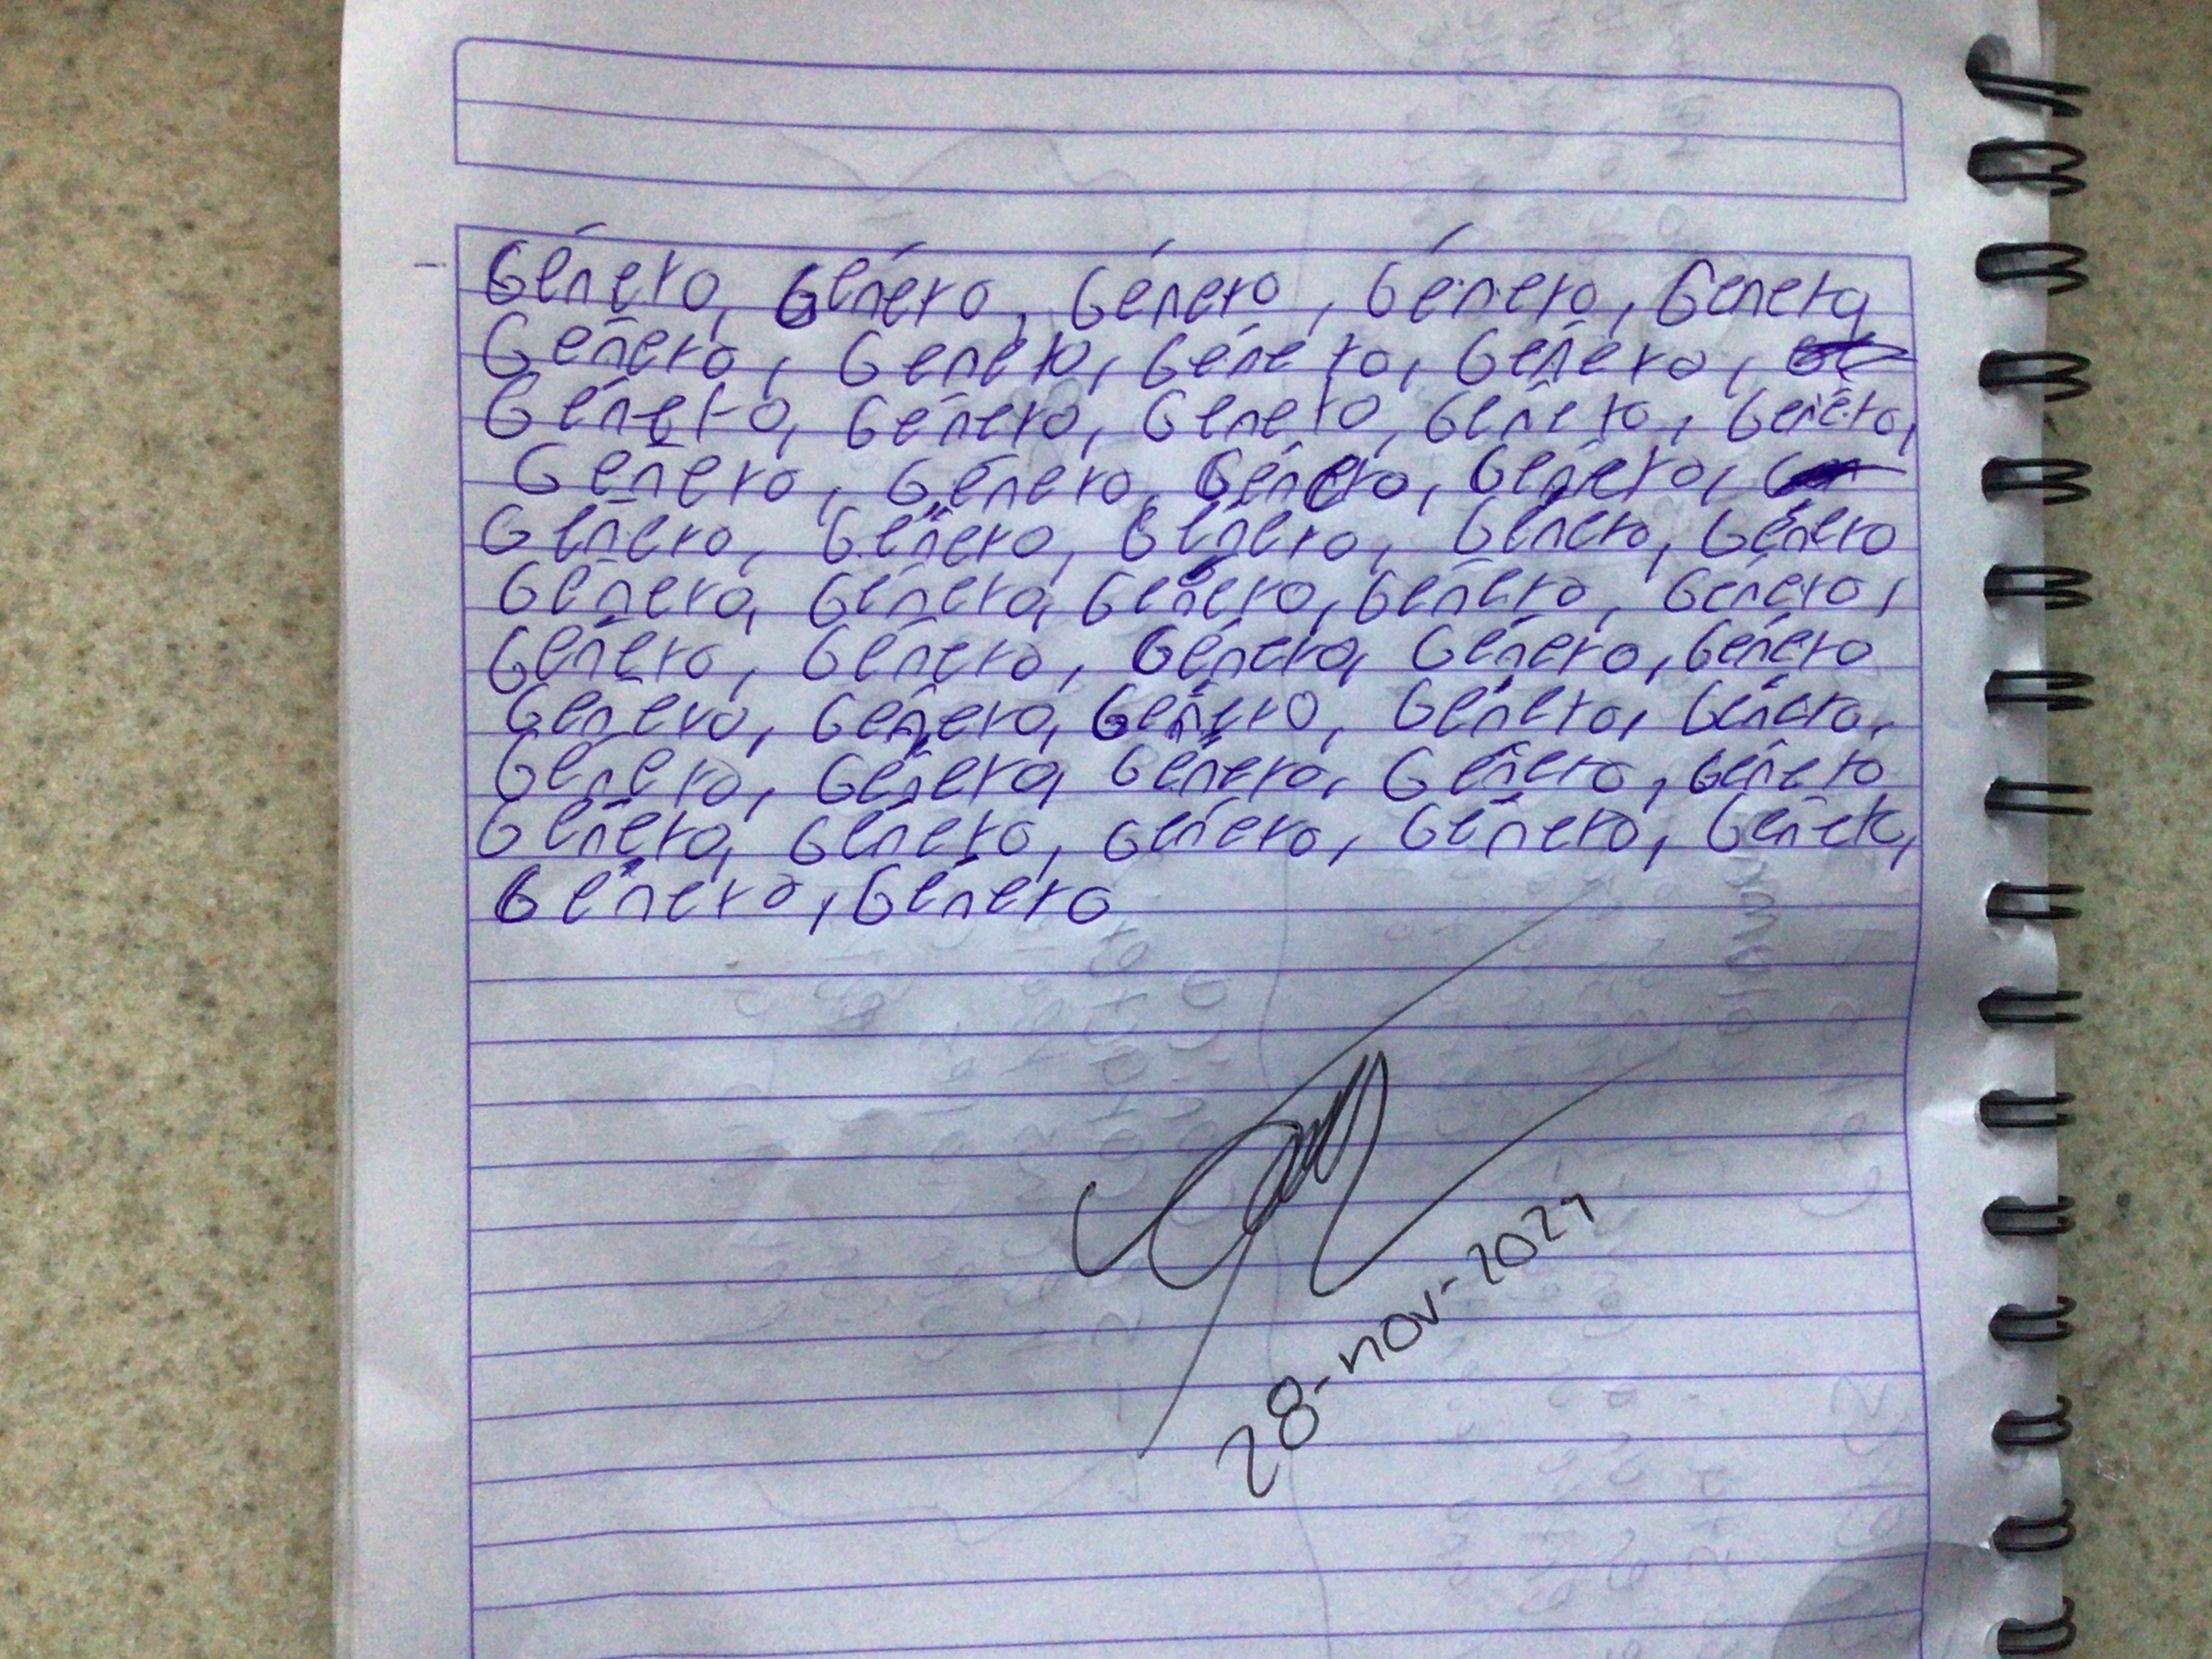 - Género, Género, Género, Género, Género,
Género, Género, Género, Género,
Género, Género, Género, Género, Género,
Género, Género, Género, Género,
Género, Género, Género, Género, Género
Género, Género, Género, Género, Género,
Género, Género, Género, Género, Género
Género, Género, Género, Género, Género,
Género, Género, Género, Género, Género
Género, Género, Género, Género, Género,
Género, Género
28-nov-2021